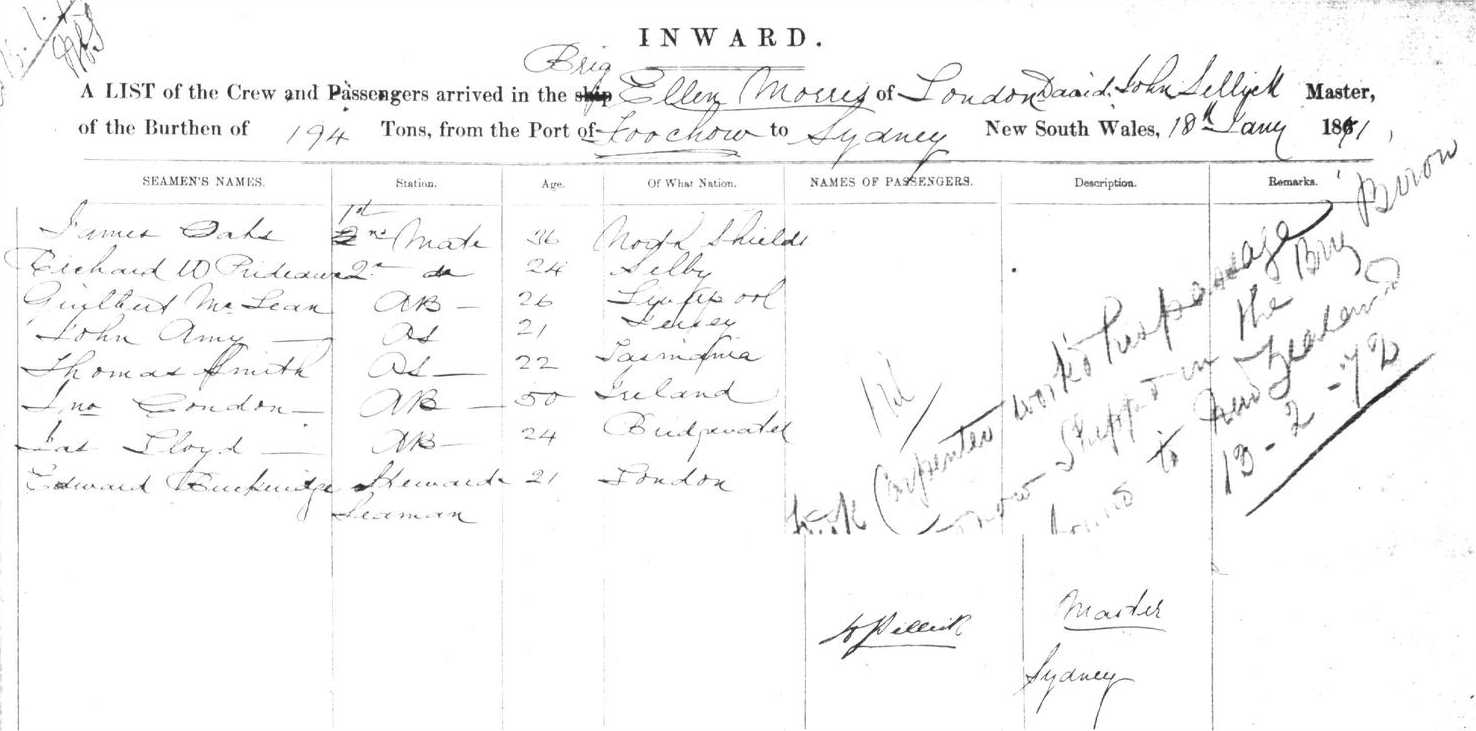 INWARD.
Brig
A LIST of the Crew and Passengers arrived in the ship Ellen Morris of London David John Sellick Master,
of the Burthen of 194 Tons, from the Port of Foochow to Sydney New South Wales, 18th Jany 1871,
SEAMEN'S NAMES. Station. Age. Of What Nation. NAMES OF PASSENGERS. Description. Remarks.
1st
James Oaks 2nd Mate 36 North Shields
Richard W Prideaux 2nd do 24 Selby
Guilbert McLean AB 26 Liverpool
John Amy OS 21 Jersey
Thomas Smith OS 22 Tasmania
Jno Condon AB 50 Ireland
Jas Lloyd AB 24 Bridgwater
Edward Buckridge Steward & 21 London
Seaman
Nil
Carpenter work'd his passage
now shipp'd in the Brig
to New Zealand
13-2-72
Sellick Master
Sydney